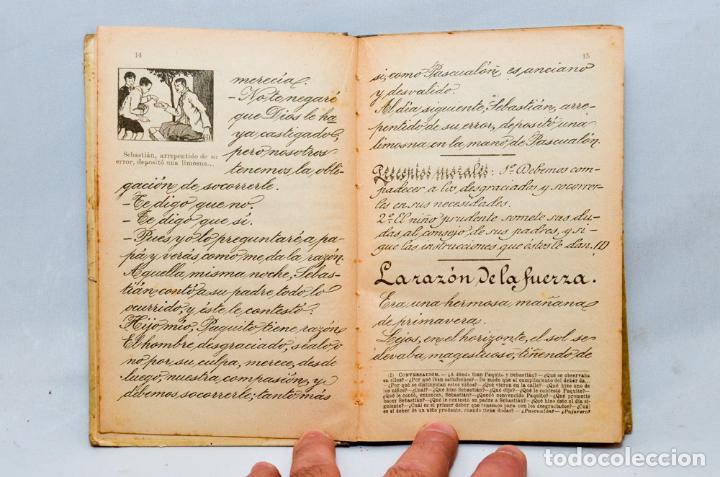 14
merecía.
-No te negaré
que Dios le ha
ya castigado;
pero nosotros
tenemos la obli-
Sebastián, arrepentido de su
error, depositó una limosna...
gación de socorrerle.
-Te digo que no.
-Te digo que sí.
-Pues yo lo preguntaré a pa-
pa y verás como me da la razón.
Aquella misma noche, Sebas-
tián contó a su padre todo lo
ocurrido, y éste le contestó:
Hijo mío, Paquito tiene razón
El hombre desgraciado, séalo o
no por su culpa, merece, desde
luego, nuestra compasión, y
debemos socorrerle; tanto más
15
si, como Pascualón, es anciano
y desvalido.
Al día siguiente, Sebastián, arre-
pentido de su error, depositó una
limosna en la mano de Pascualón.
Preceptos morales: 1º Debemos com-
padecer a los desgraciados y socorrer-
les en sus necesidades.
2º El niño prudente somete sus du-
das al consejo de sus padres, y si-
gue las instrucciones que éstos le dan. (1)
La razón de la fuerza.
Era una hermosa mañana
de primavera.
Lejos, en el horizonte, el sol se
elevaba magestuoso, tiñendo de
(1) CONVERSACIÓN.—¿A dónde iban Paquito y Sebastián?—¿Qué se observaba
en ellos?—¿Por qué iban satisfechos?—De modo que el cumplimiento del deber da...
—¿Por qué se distinguían estos niños?—¿Qué vieron en la calle?—¿Qué hizo uno de
los niños?—¿Qué hizo Sebastián?—¿Qué dijo?—¿Qué le contestó Paquito?—
¿Qué le contó, entonces, Sebastián?—¿Quedó convencido Paquito?—¿Qué prometió
hacer Sebastián?—¿Qué le contestó su padre a Sebastián?—¿Qué hizo este al día si-
guiente?—¿Cuál es el primer deber que tenemos para con los desgraciados?—¿Cuál
es el deber de un niño prudente, cuando tiene dudas?—
todocoleccion